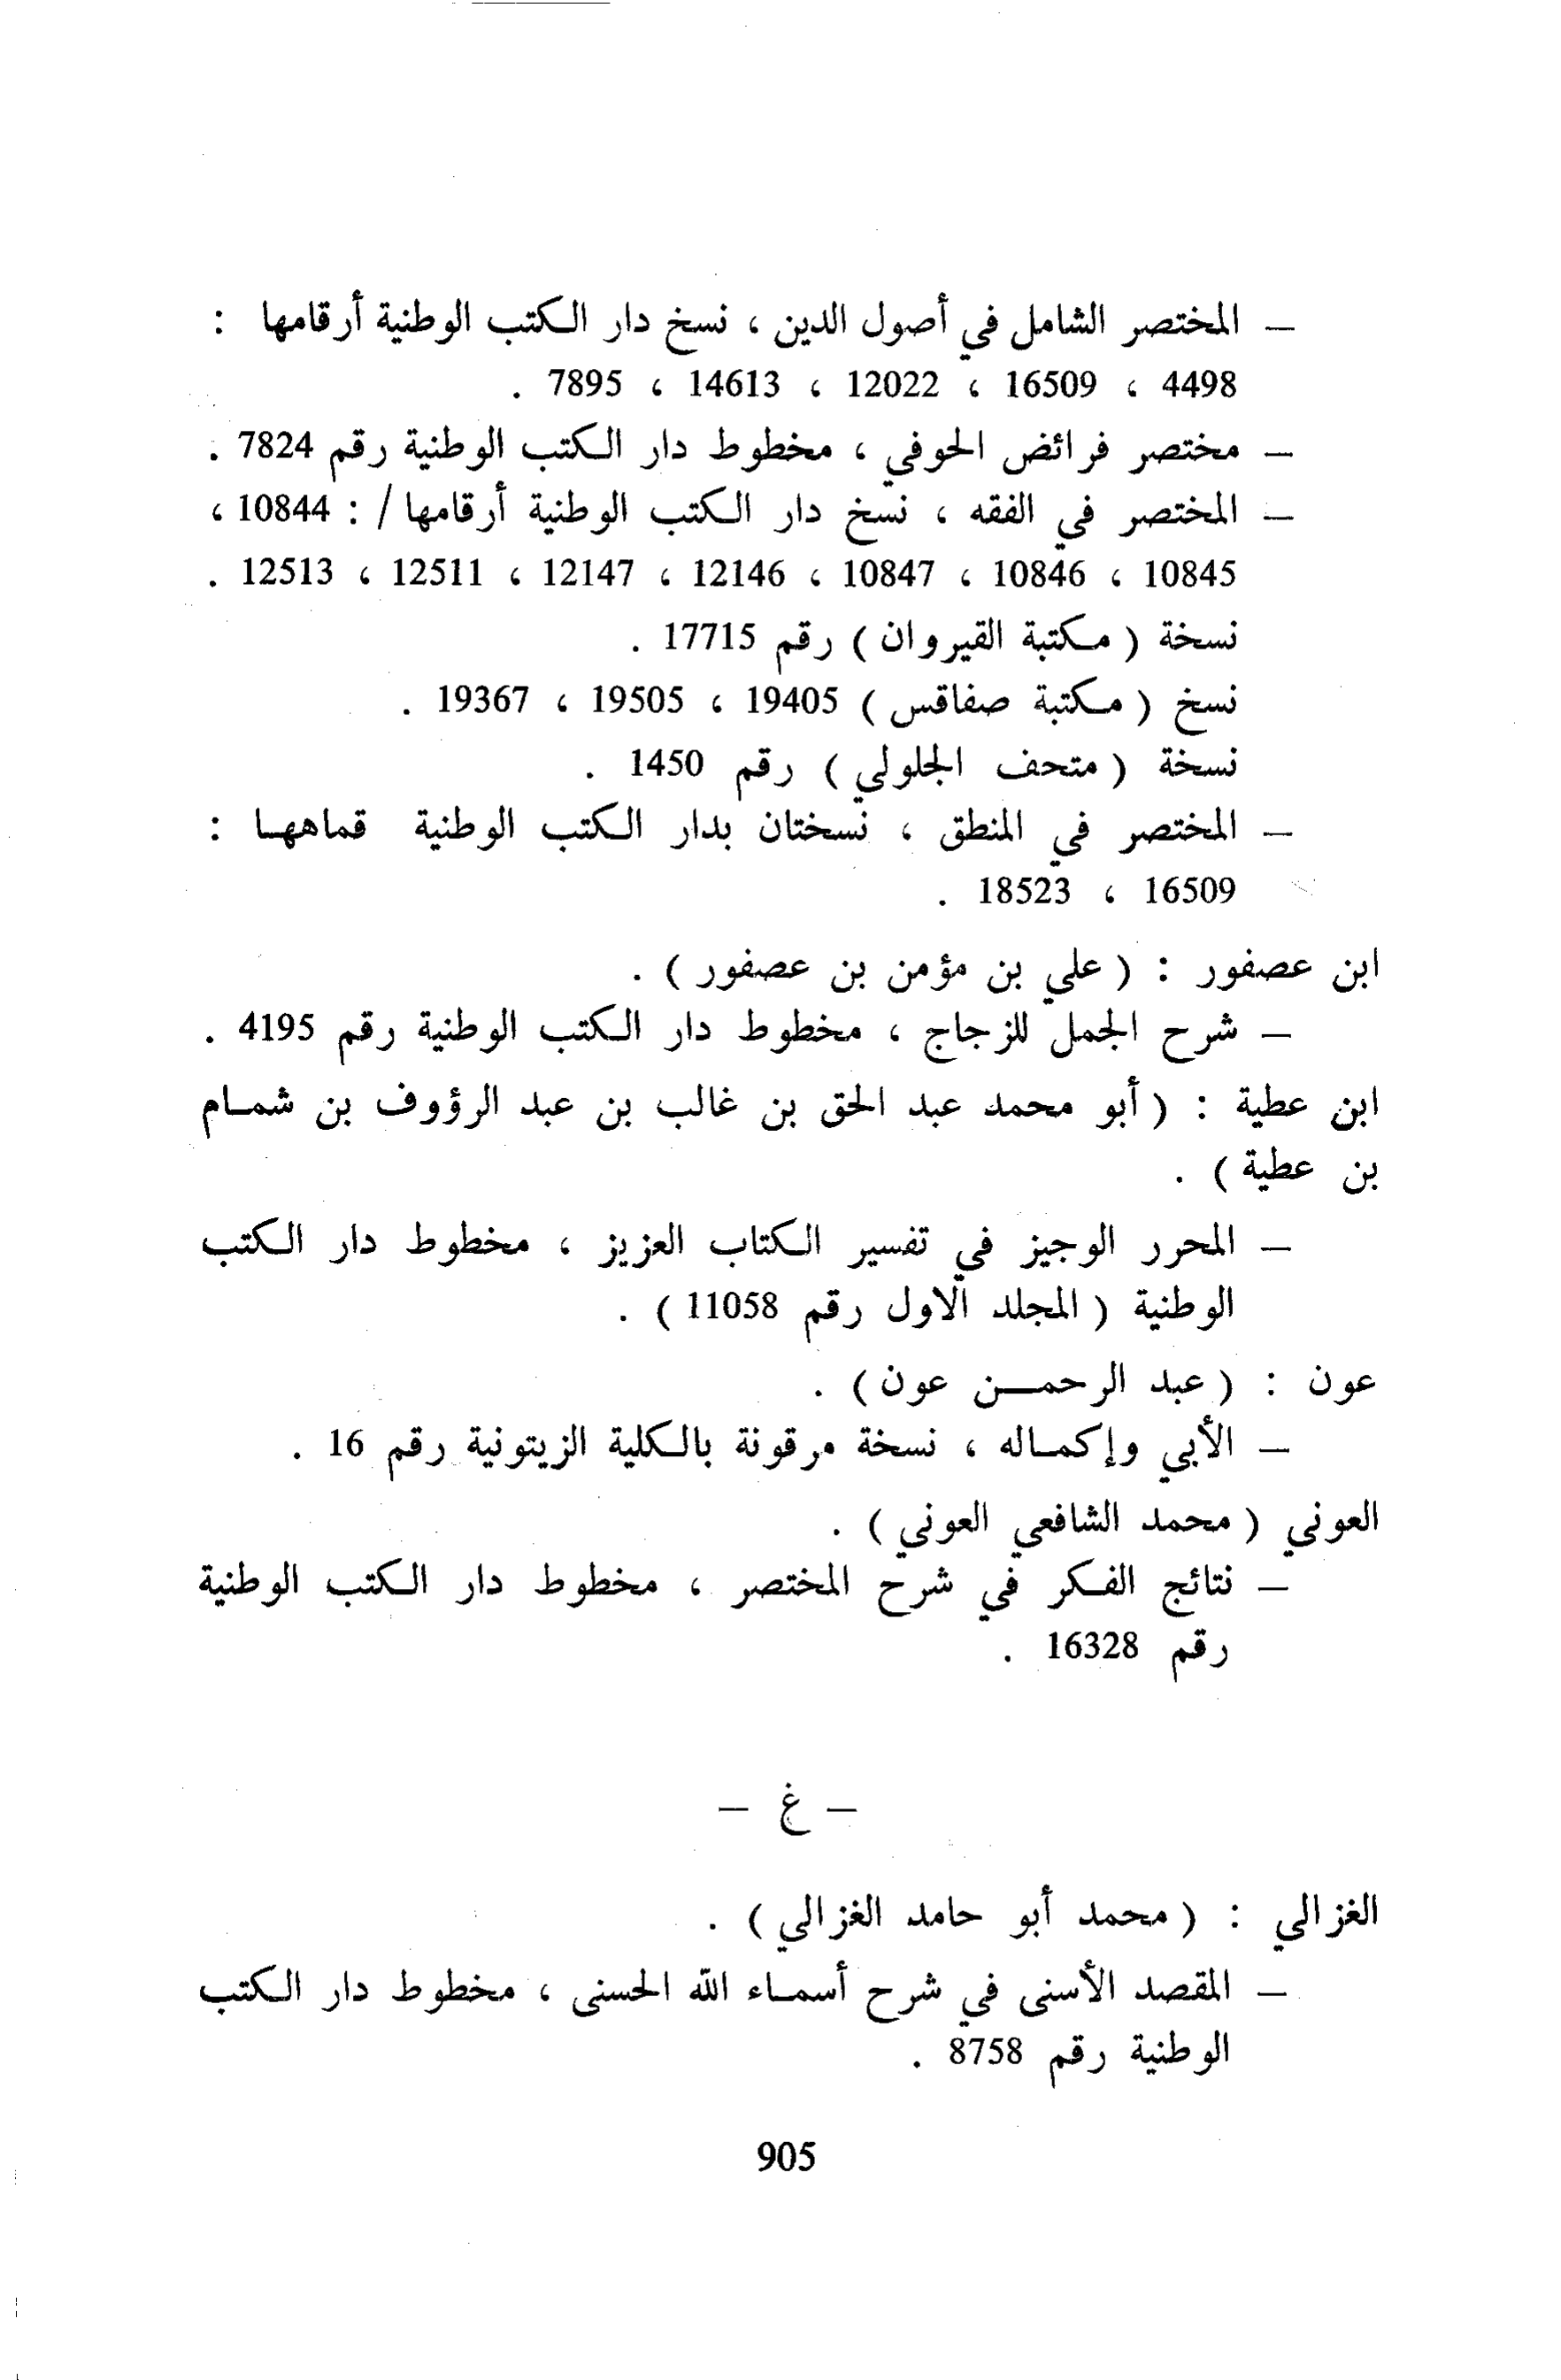 — المختصر الشامل في أصول الدين ، نسخ دار الكتب الوطنية أرقامها :
4498 ، 16509 ، 12022 ، 14613 ، 7895 .
— مختصر فرائض الحوفي ، مخطوط دار الكتب الوطنية رقم 7824 .
— المختصر في الفقه ، نسخ دار الكتب الوطنية أرقامها / : 10844 ،
10845 ، 10846 ، 10847 ، 12146 ، 12147 ، 12511 ، 12513 .
نسخة ( مكتبة القيروان ) رقم 17715 .
نسخ ( مكتبة صفاقس ) 19405 ، 19505 ، 19367 .
نسخة ( متحف الجلولي ) رقم 1450 .
— المختصر في المنطق ، نسختان بدار الكتب الوطنية قماهها :
16509 ، 18523 .
ابن عصفور : ( علي بن مؤمن بن عصفور ) .
— شرح الجمل للزجاج ، مخطوط دار الكتب الوطنية رقم 4195 .
ابن عطية : ( أبو محمد عبد الحق بن غالب بن عبد الرؤوف بن شمام
بن عطية ) .
— المحرر الوجيز في تفسير الكتاب العزيز ، مخطوط دار الكتب
الوطنية ( المجلد الاول رقم 11058 ) .
عون : ( عبد الرحمن عون ) .
— الأبي وإكماله ، نسخة مرقونة بالكلية الزيتونية رقم 16 .
العوني ( محمد الشافعي العوني ) .
— نتائج الفكر في شرح المختصر ، مخطوط دار الكتب الوطنية
رقم 16328 .
— غ —
الغزالي : ( محمد أبو حامد الغزالي ) .
— المقصد الأسنى في شرح أسماء الله الحسنى ، مخطوط دار الكتب
الوطنية رقم 8758 .
905